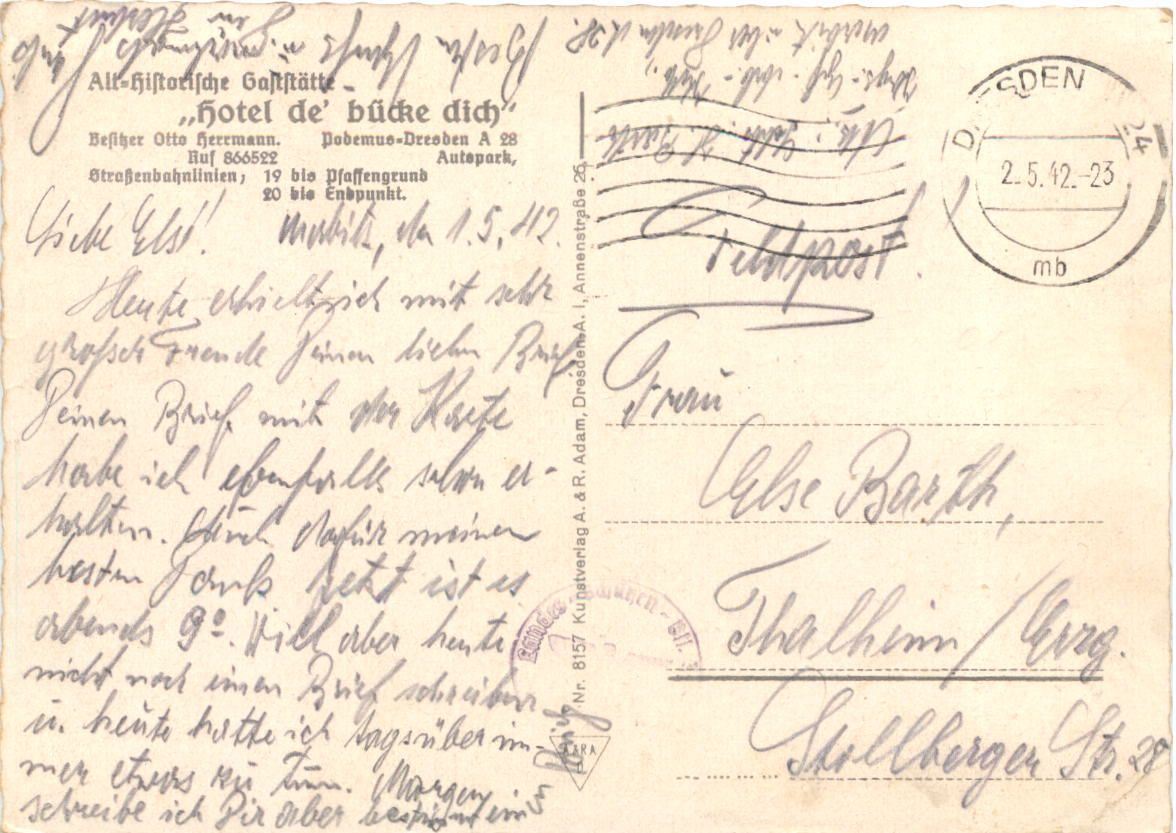 Alt-Historische Gaststätte
„Hotel de' bücke dich"
Besitzer Otto Herrmann. Podemus-Dresden A 28
Ruf 866522 Autopark,
Straßenbahnlinien; 19 bis Pfaffengrund
20 bis Endpunkt.
Liebe Else! den 1.5.42.
Heute erhielt ich mit sehr
großer Freude Deinen lieben Brief.
Deinen Brief mit der Karte
habe ich ebenfalls schon er-
halten. Auch dafür meinen
besten Dank. Jetzt ist es
abends 9º. Will aber heute
nicht noch einen Brief schreiben
u. heute hatte ich tagsüber im-
mer etwas zu tun. Morgen
schreibe ich Dir aber bestimmt ein
Nr. 8157 Kunstverlag A. & R. Adam, Dresden-A. 1, Annenstraße 26
A & RA
DRESDEN 24
2.5.42.-23
mb
Feldpost.
Frau
Else Barth,
Thalheim/Erzg.
Stollberger Str. 28
Landes-Schützen-